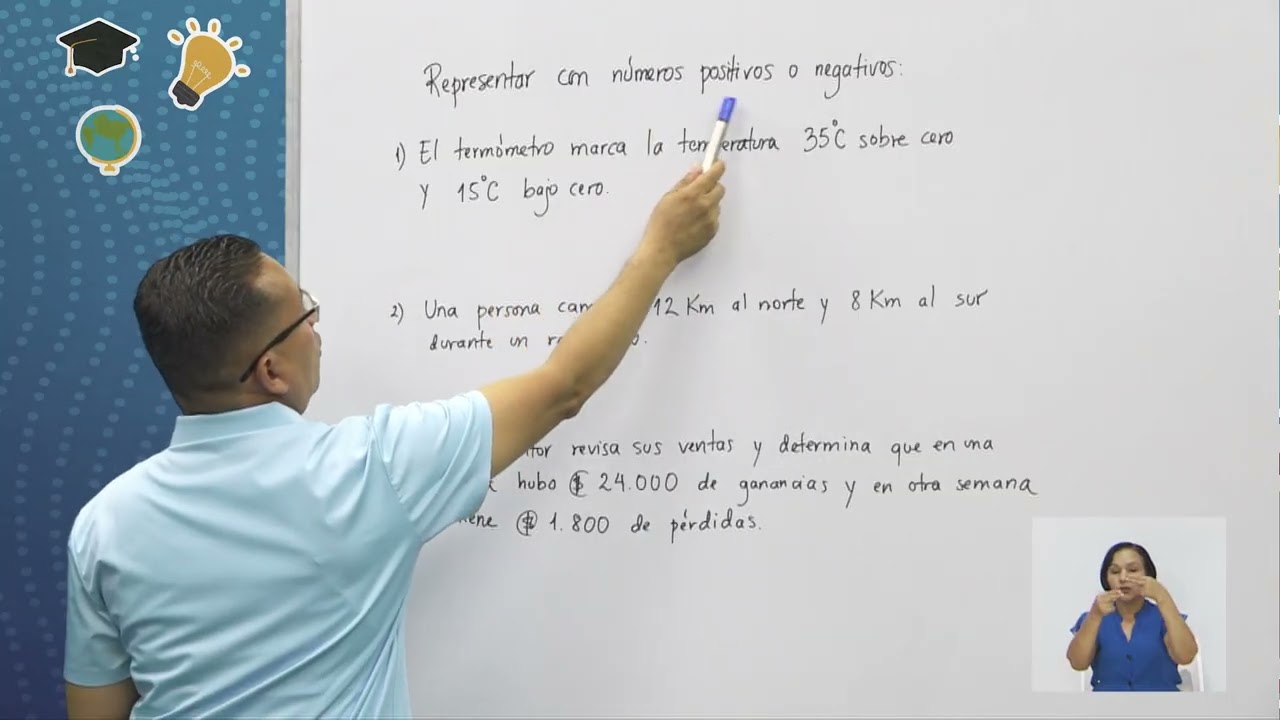 Representar con números positivos o negativos:
1) El termómetro marca la temperatura 35°C sobre cero
y 15°C bajo cero.
2) Una persona 12 Km al norte y 8 Km al sur
durante un
revisa sus ventas y determina que en una
hubo ₡ 24.000 de ganancias y en otra semana
₡ 1.800 de pérdidas.